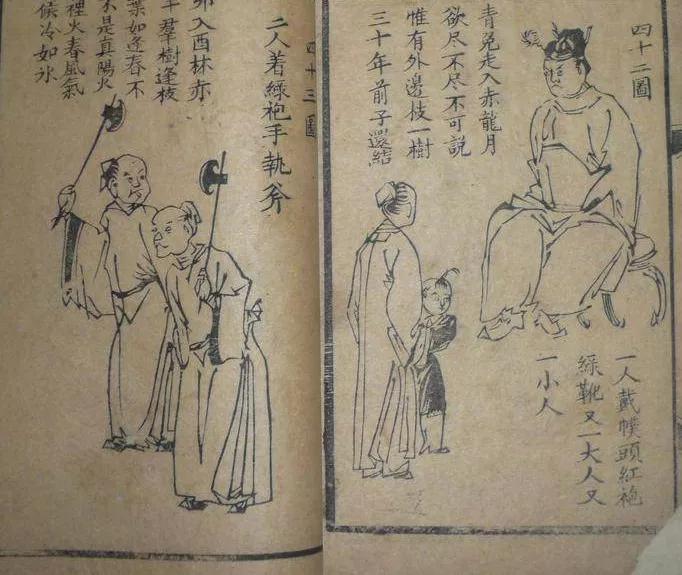 四十二圖
青兔走入赤龍月
欲尽不尽不可說
惟有外邊枝一樹
三十年前子還結
一人戴幞頭紅袍
綠靴又一大人又
一小人
四十三圖
二人着綠袍手執斧
卯入酉林亦
羣樹逢枝
葉如逢春不
是真陽火
裡火春風氣
候冷如氷